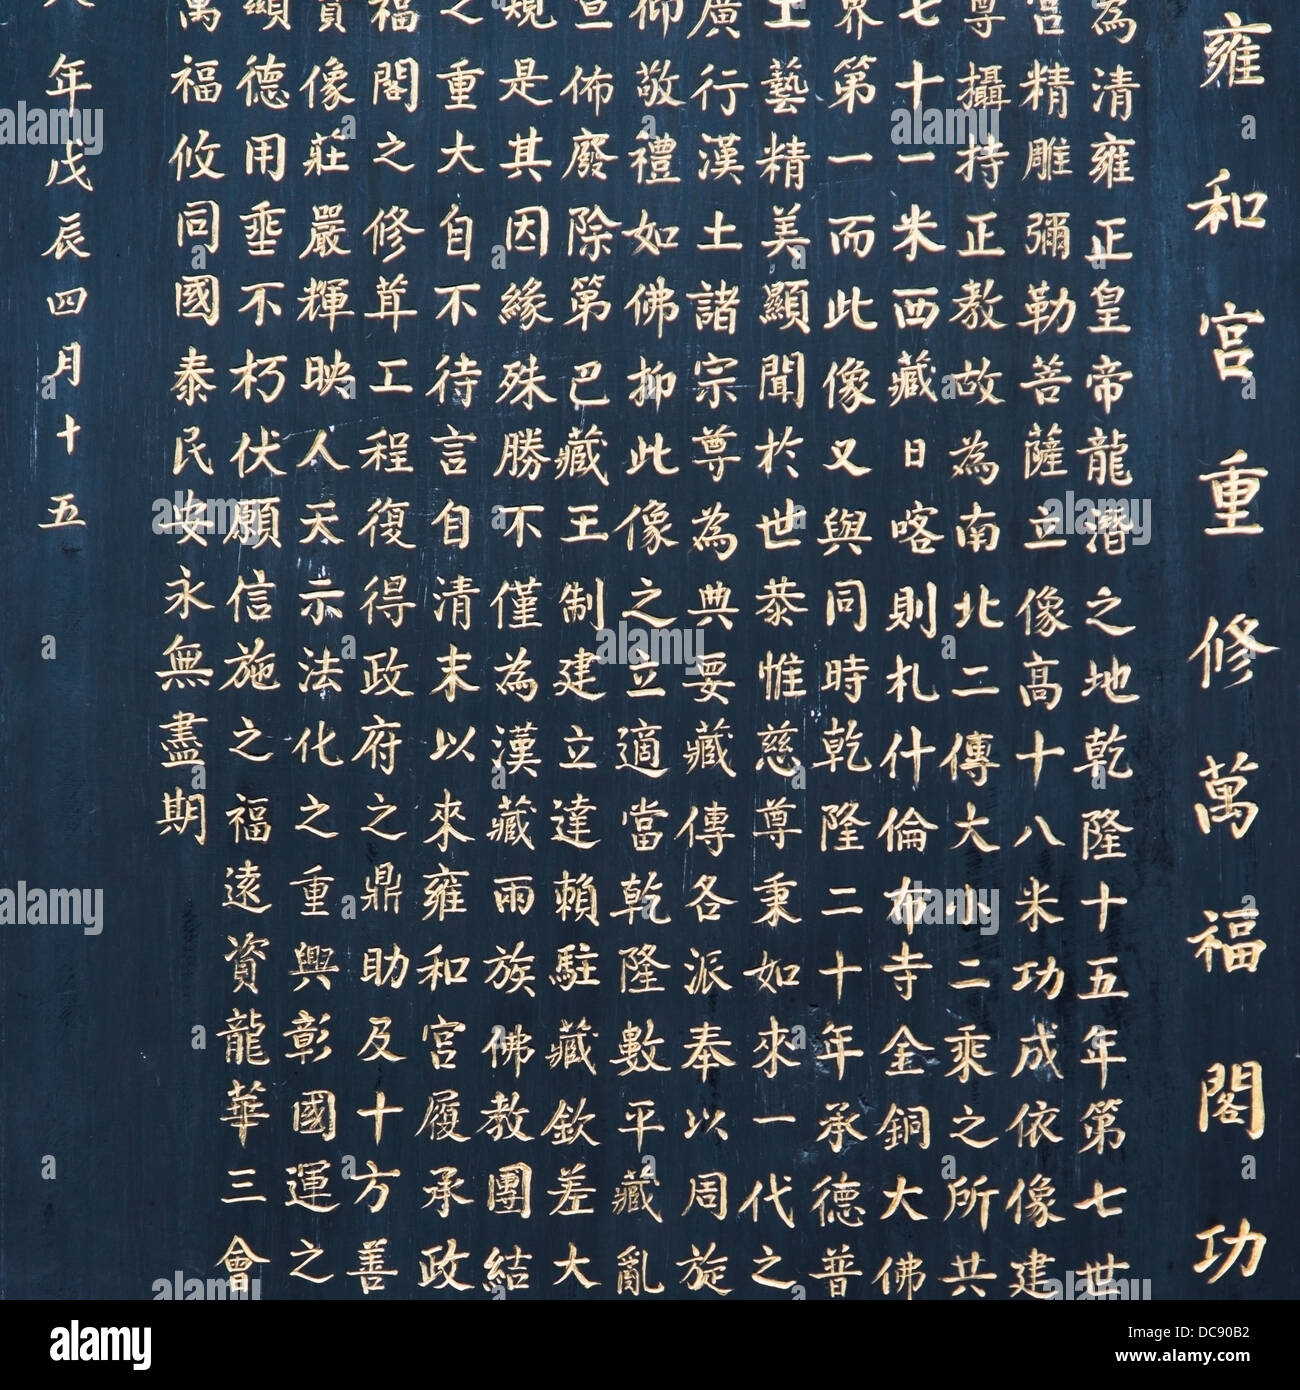 雍和宮重修萬福閣功
為清雍正皇帝龍潛之地乾隆十五年第七世
宮精雕彌勒菩薩立像高十八米功成依像建
尊攝持正教故為南北二傳大小二乘之所共
七十一米西藏日喀則札什倫布寺金銅大佛
界第一而此像又與同時乾隆二十年承德普
工藝精美顯聞於世恭惟慈尊秉如來一代之
廣行漢土諸宗尊為典要藏傳各派奉以周旋
仰敬禮如佛抑此像之立適當乾隆數平藏亂
宣佈廢除第巴藏王制建立達賴駐藏欽差大
規是其因緣殊勝不僅為漢藏兩族佛教團結
之重大自不待言自清末以來雍和宮履承政
福閣之修葺工程復得政府之鼎助及十方善
寶像莊嚴輝映人天示法化之重興彰國運之
顯德用垂不朽伏願信施之福遠資龍華三會
萬福攸同國泰民安永無盡期
年戊辰四月十五
alamy
Image ID: DC90B2
www.alamy.com